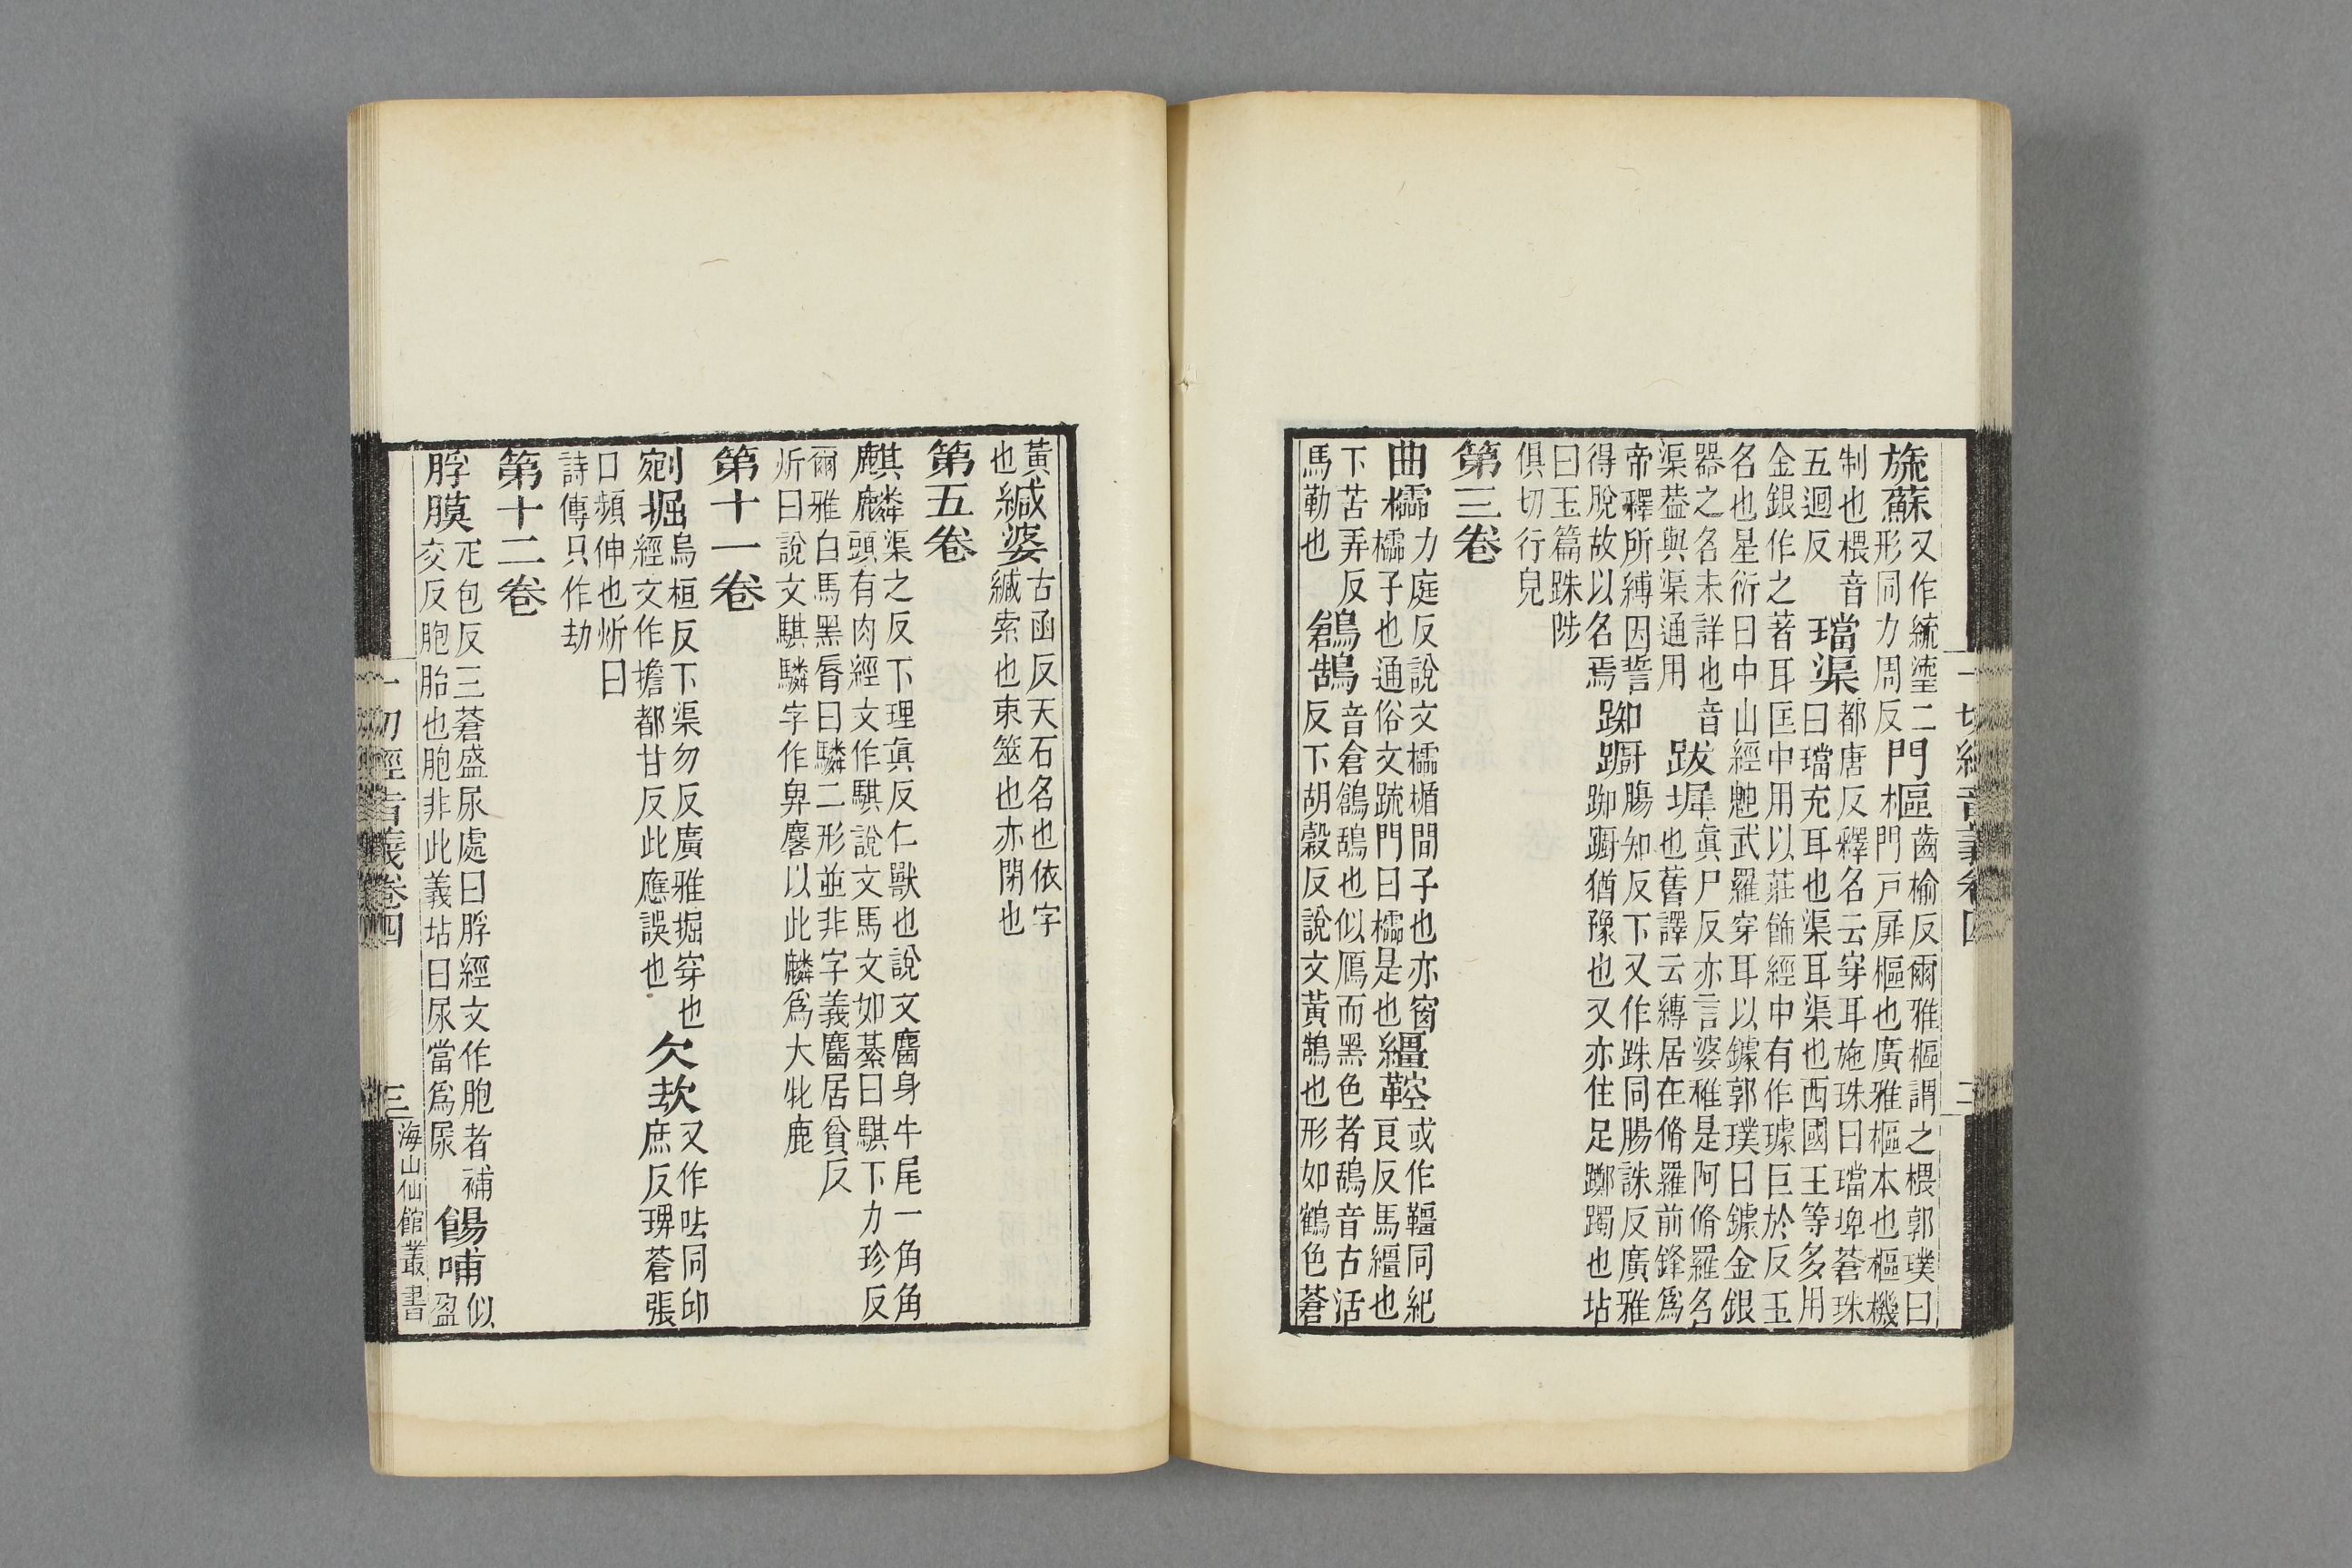 一切經音義卷四
二
旒蘇又作統瀅二形同力周反門樞齒榆反爾雅樞謂之椳郭璞曰門戸扉樞也廣雅樞本也樞機
制也椳音五迴反璫渠都唐反釋名云穿耳施珠曰璫埤蒼珠曰璫充耳也渠耳渠也西國王等多用
金銀作之著耳匡中用以莊飾經中有作璩巨於反玉名也星衍曰中山經䰠武羅穿耳以鐻郭璞曰鐻金銀
器之名未詳也音渠葢與渠通用跋墀眞尸反亦言婆稚是阿脩羅名也舊譯云縛居在脩羅前鋒爲
帝釋所縛因誓得脫故以名焉踟躕腸知反下又作跦同腸誅反廣雅踟躕猶豫也又亦住足躑躅也坫
曰玉篇跦陟俱切行皃
第三卷
曲櫺力庭反說文櫺楯間子也亦窗櫺子也通俗文疏門曰櫺是也繮鞚或作韁同紀良反馬繮也
下苦弄反馬勒也鶬鵠音倉鶬鴰也似鴈而黑色者鴰音古活反下胡穀反說文黃鵠也形如鶴色蒼
黃也緘婆古函反天石名也依字緘索也束筮也亦閉也
第五卷
麒麟渠之反下理眞反仁獸也說文麕身牛尾一角角頭有肉經文作騏說文馬文如綦曰騏下力珍反
爾雅白馬黑脣曰驎二形並非字義麕居貧反炘曰說文騏驎字作𢌿麐以此麟爲大牝鹿
第十一卷
剜掘烏桓反下渠勿反廣雅掘穿也經文作擔都甘反此應誤也欠㰦又作呿同邱庶反琾蒼張
口頻伸也炘曰詩傳只作劫
第十二卷
脬膜疋包反三蒼盛尿處曰脬經文作胞者補交反胞胎也胞非此義坫曰尿當爲㞙餳哺似盈
一切經音義卷四
三
海山仙館叢書